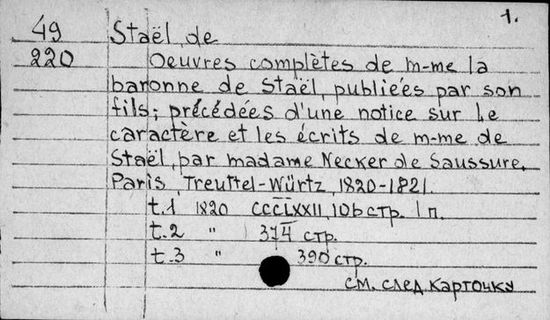 1.
49 Staël, de
220 Oeuvres complètes de m-me la
baronne de Staël, publiées par son
fils; précédées d'une notice sur le
caractère et les écrits de m-me de
Staël, par madame Necker de Saussure.
Paris, Treuttel-Würtz, 1820-1821.
t.1 1820 CCCLXXII, 106 стр. 1 п.
t.2 " 374 стр.
t.3 " 390 стр.
см. след карточку